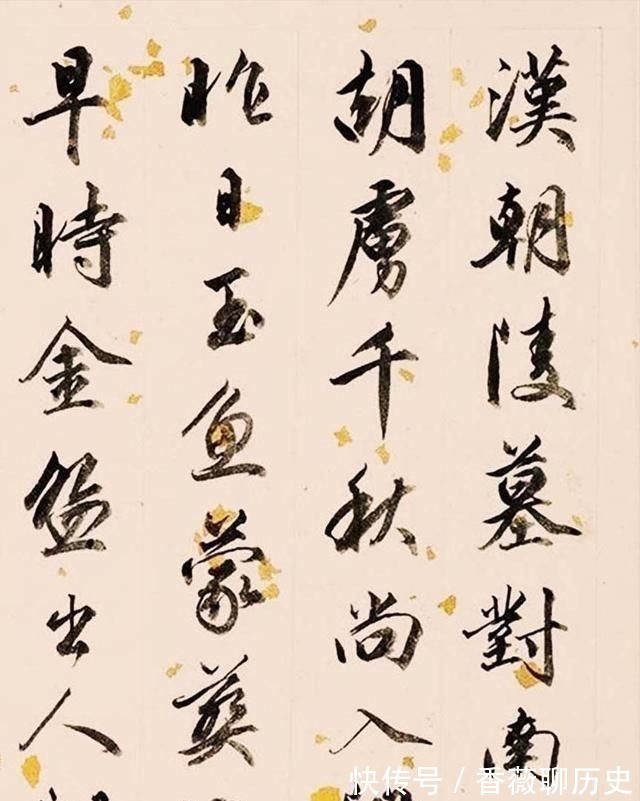 漢朝陵墓對南
胡虜千秋尚入
昨日玉魚蒙葬
早時金盌出人
快传号 / 香薇聊历史